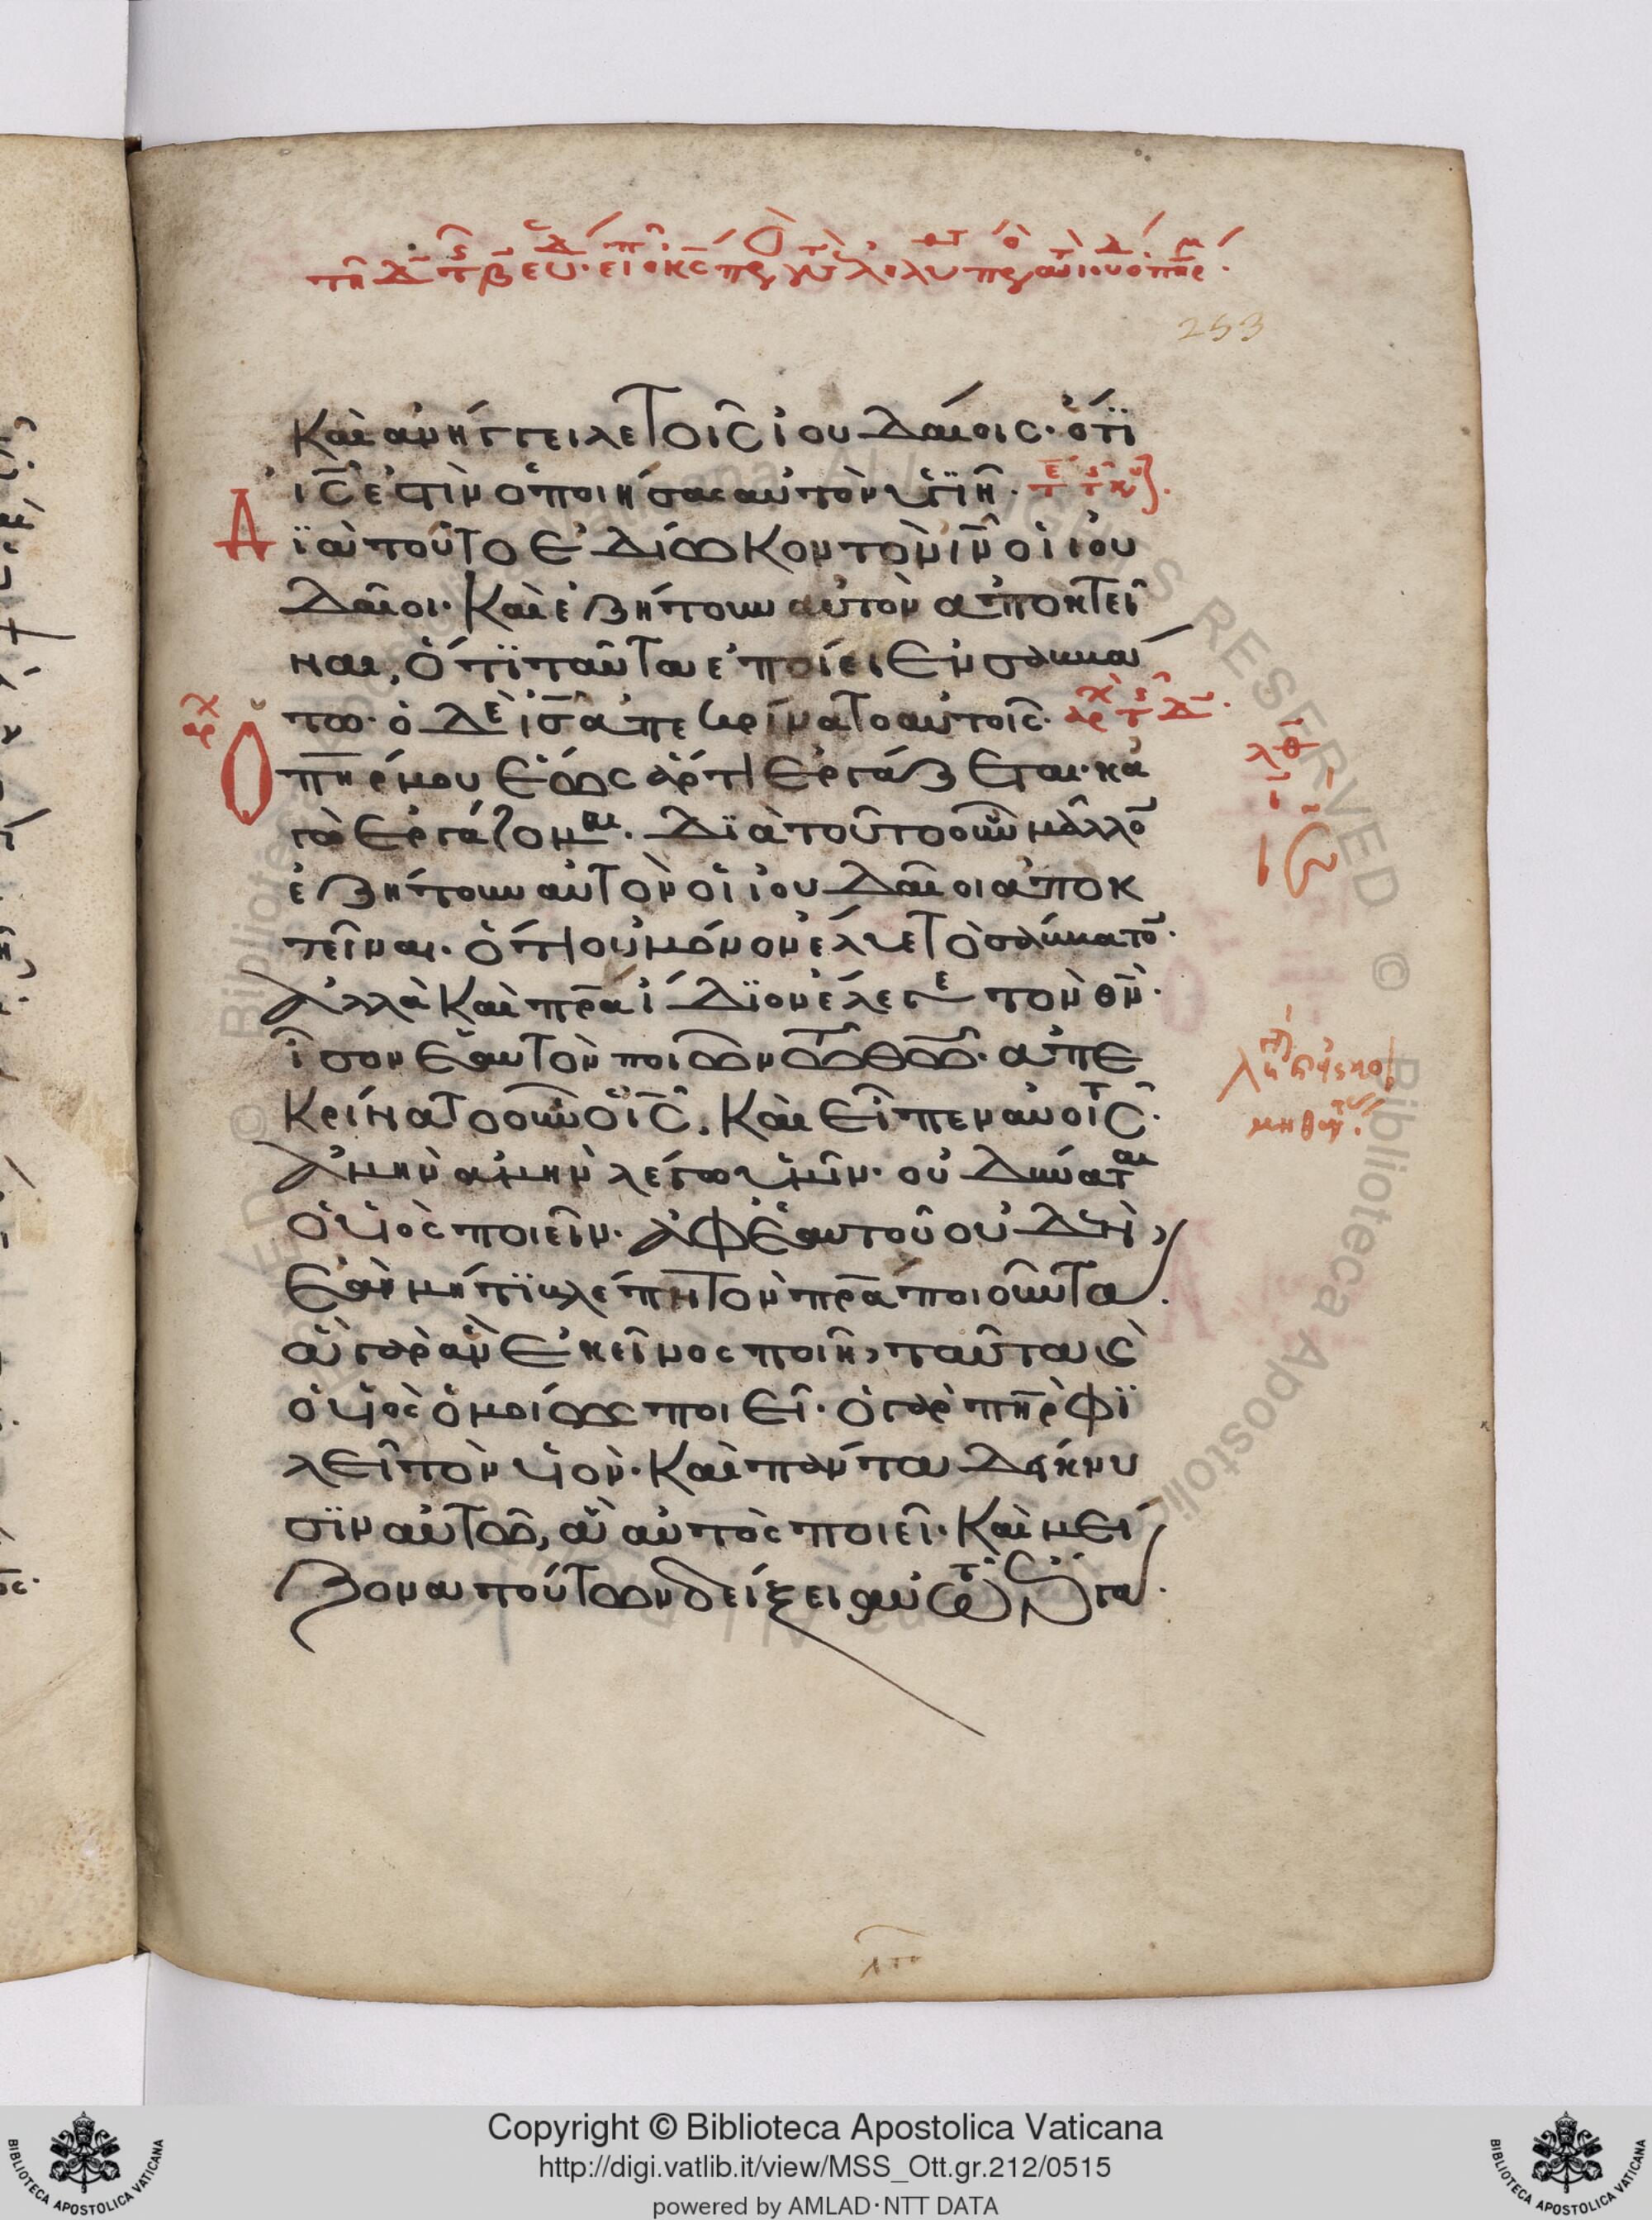 253
Καὶ ἀνήγγειλε τοῖς ἰουδαίοις· ὅτϊ
ις ἐστὶν ὁ ποιήσας αὐτὸν ὑγϊῆ·
Δ ϊὰ τοῦτο ἐδίωκον τὸν ιν οἱ ἰου
δαῖοι· Καὶ ἐζήτουν αὐτὸν ἀποκτεῖ
ναι, ὅτϊ ταῦτα ἐποίει ἐν σαββά
τω· ὁ δὲ ισ ἀπεκρίνατο αὐτοῖς·
Ὁ πηρ μου ἕως ἄρτι ἐργάζεται· κα
γὼ ἐργάζομαι. Δϊὰ τοῦτο οὖν μᾶλλον
ἐζήτουν αὐτὸν οἱ ἰουδαῖοι ἀποκ
τεῖναι. ὅτι οὐ μόνον ἔλυε τὸ σάββατον·
Ἀλλὰ Καὶ πρα ἴδϊον ἔλεγε τὸν θν·
ἶσον ἑαυτὸν ποιῶν τῶ θῶ. ἀπε
Κρίνατο οὖν ὁ ις, Καὶ εἶπεν αὐτοῖς·
Ἀμὴν ἀμὴν λέγω ὑμῖν· οὐ δύναται
ὁ υἱὸς ποιεῖν· ἀφ ἑαυτοῦ οὐδὲν,
Ἐὰν μή τϊ βλέπη τὸν πρα ποιοῦντα.
ἃ γὰρ ἂν ἐκεῖνος ποιῆ, ταῦτα ϛ
ὁ υἱὸς ὁμοίως ποιεῖ· ὁ γὰρ πηρ φϊ
λεῖ τὸν υἱὸν· Καὶ πάντα δείκνυ
σϊν αὐτῶ, ἃ αὐτὸς ποιεῖ. Καὶ μεί
ζονα τούτων δείξει αὐτῶ ἔργα.
Copyright © Biblioteca Apostolica Vaticana
http://digi.vatlib.it/view/MSS_Ott.gr.212/0515
powered by AMLAD·NTT DATA
BIBLIOTECA APOSTOLICA VATICANA
BIBLIOTECA APOSTOLICA VATICANA